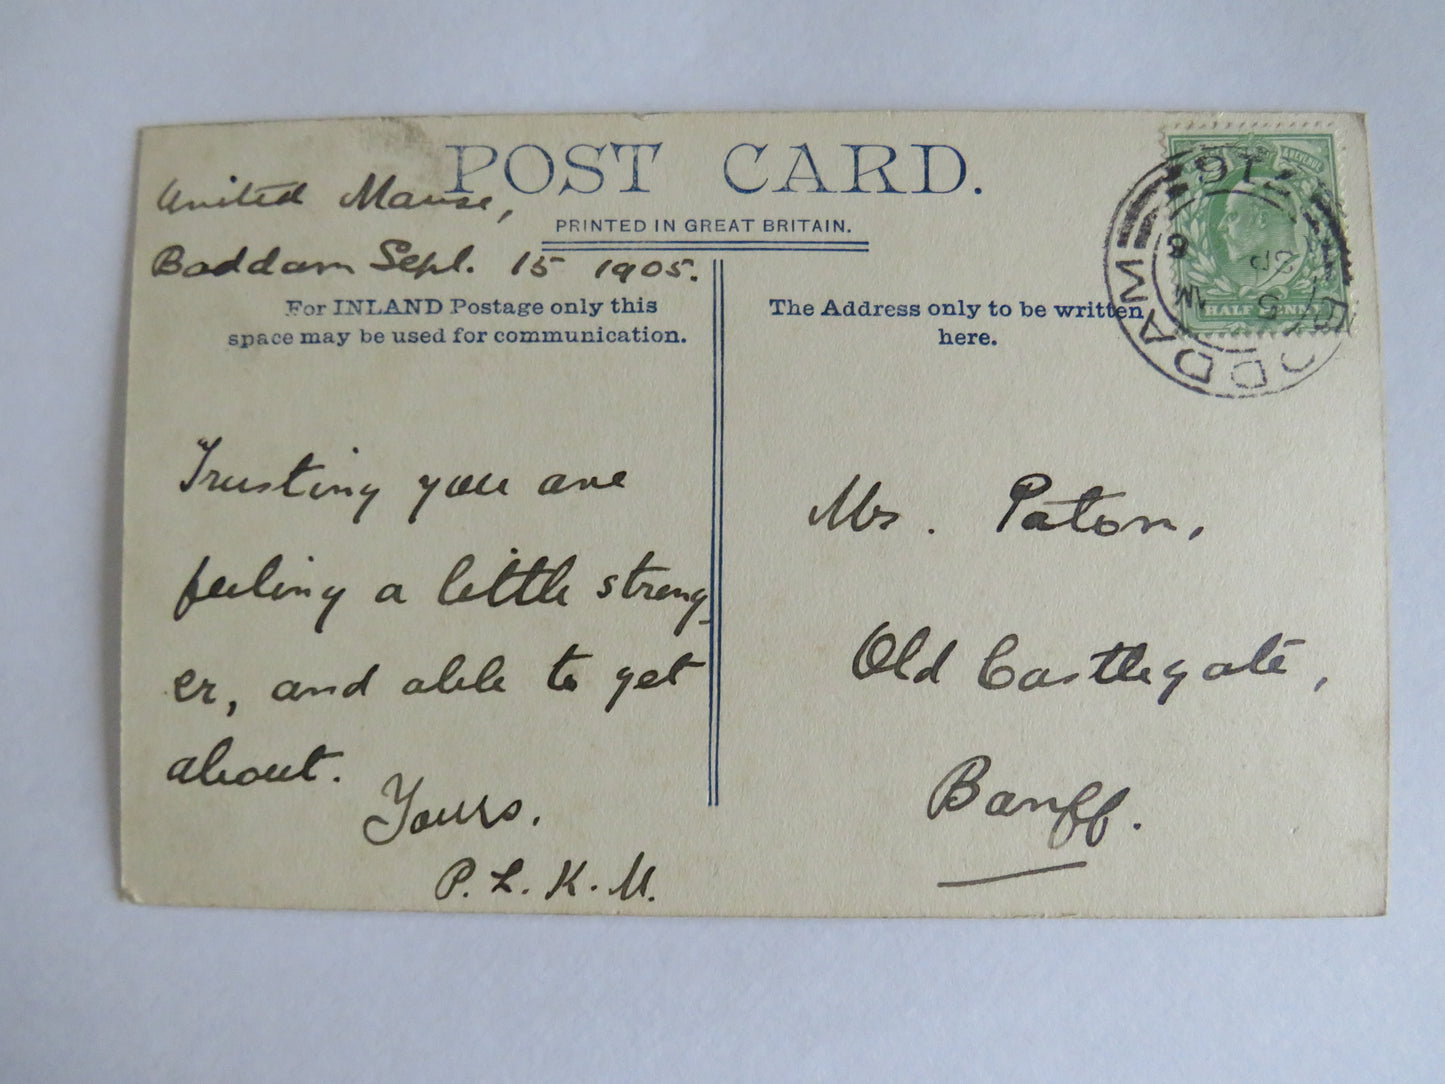 POST CARD.
PRINTED IN GREAT BRITAIN.
United Manse,
Boddam Sept. 15 1905.
For INLAND Postage only this
space may be used for communication.
The Address only to be written
here.
Trusting you are
feeling a little strong-
er, and able to get
about.
Yours.
P. L. K. M.
Mrs. Paton,
Old Castlegate,
Banff.
REVENUE
HALF PENNY
BODDAM
SP